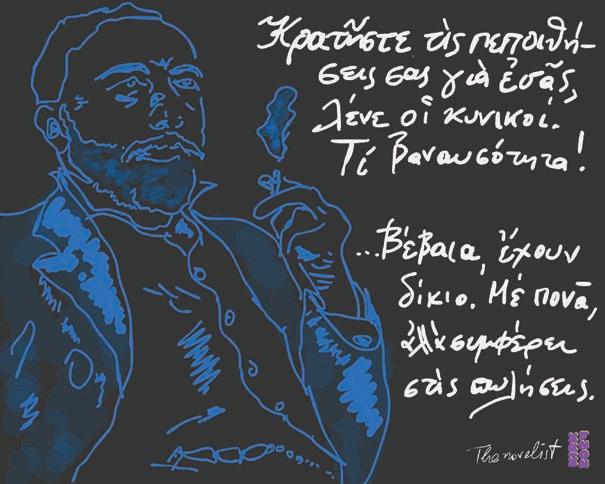 Κρατῆστε τὶς πεποιθή-
σεις σας γιὰ ἐσᾶς,
λένε οἱ κυνικοί.
Τί βαναυσότητα!
...Βέβαια, ἔχουν
δίκιο. Μὲ πονᾶ,
ἀλλὰ συμφέρει
στὶς πωλήσεις.
The novelist